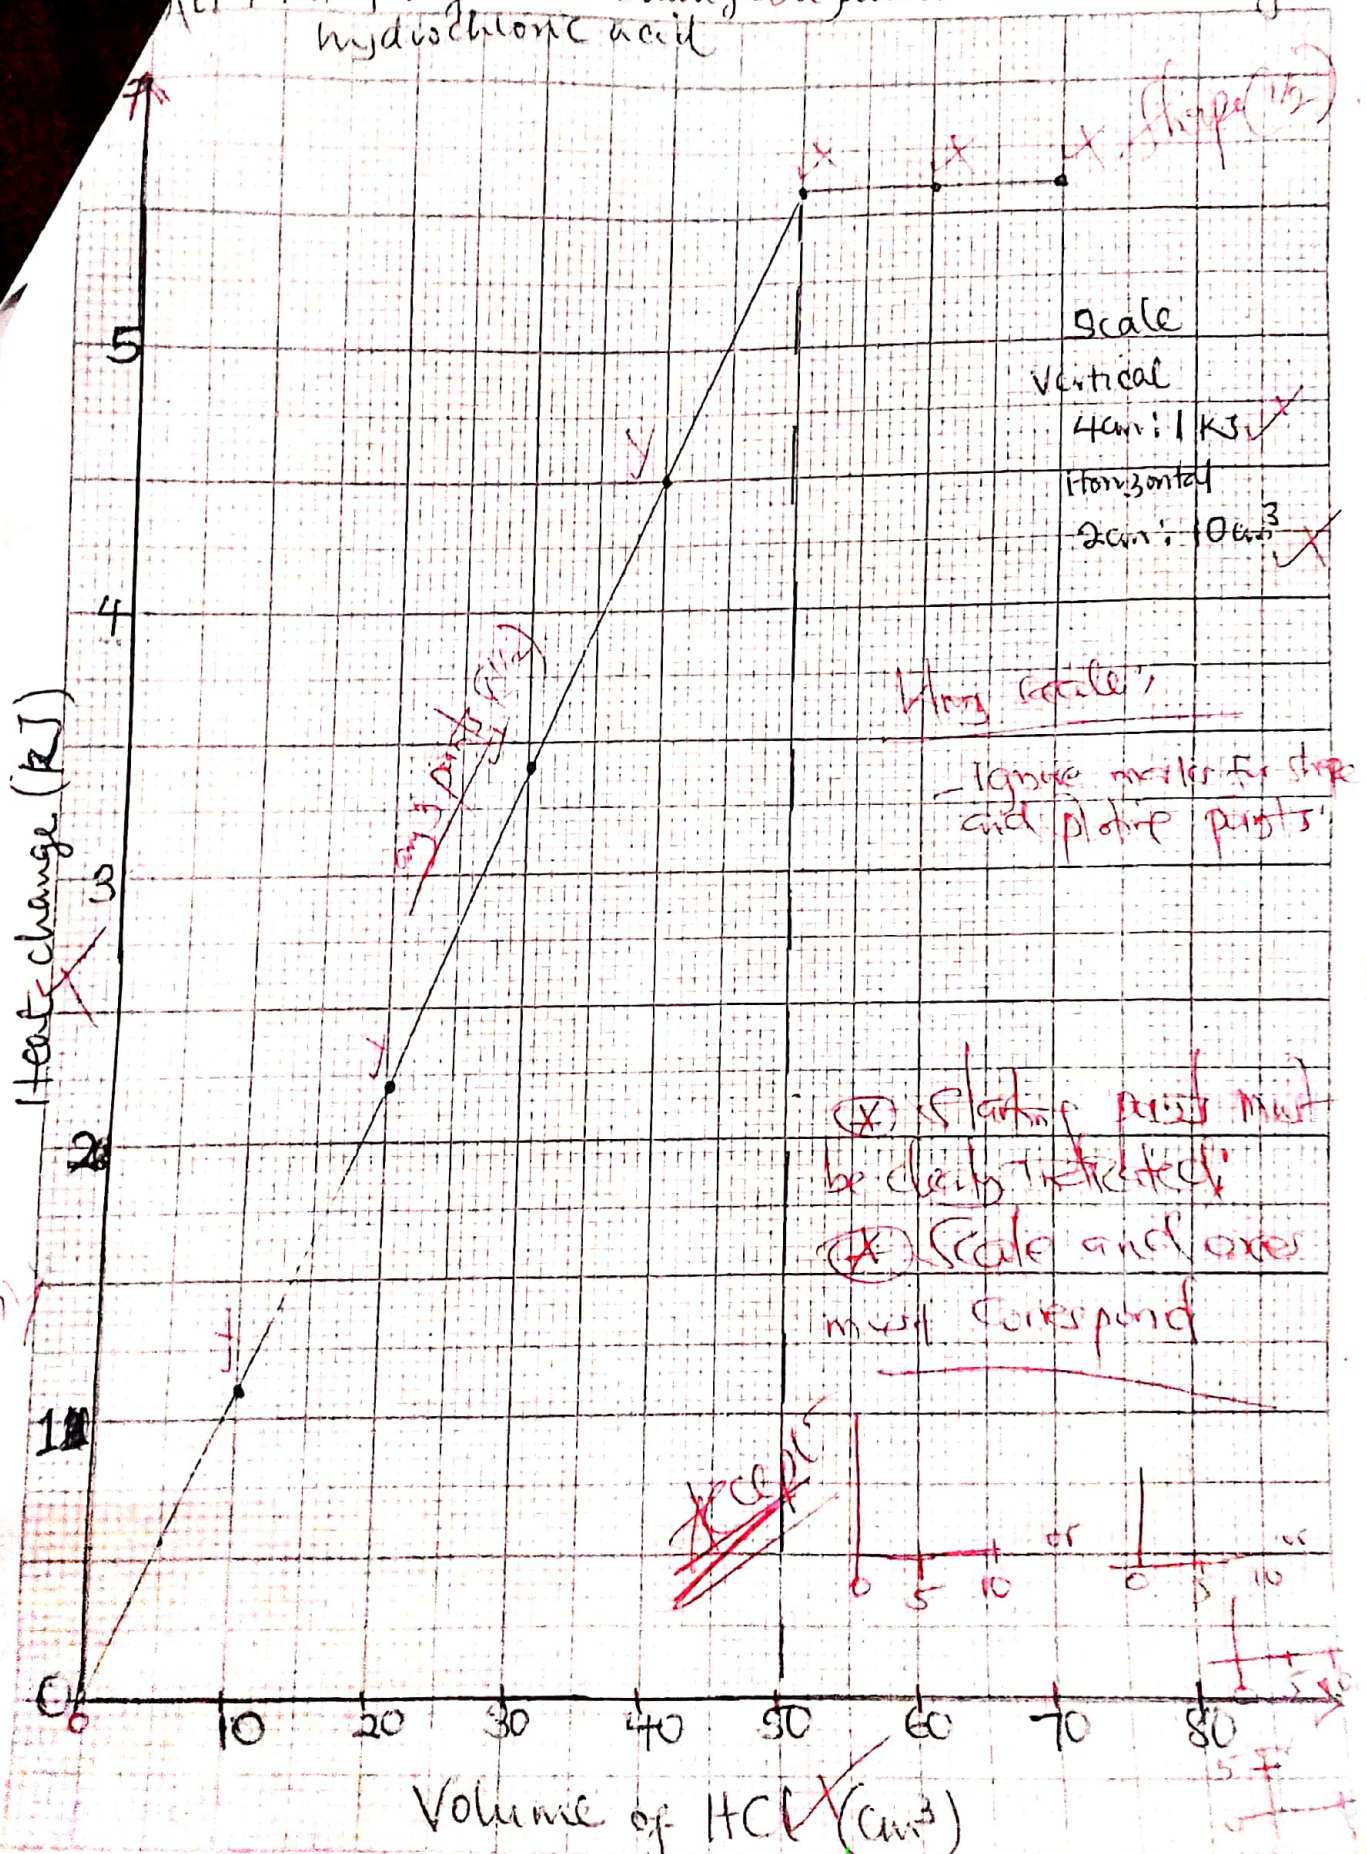 hydrochloric acid
Shape (1/2)
5
Scale
Vertical
4cm : 1 KJ
Horizontal
2cm : 10cm³
4
any 3 points (1½)
Wrong scale;
- Ignore marks for shape
and plotting points
3
Heat change (kJ)
2
Starting points must
be clearly indicated;
Scale and axes
must correspond
1
Accept
0 5 10 or
0 5 10 or
0
0 10 20 30 40 50 60 70 80
Volume of HCl (cm³)